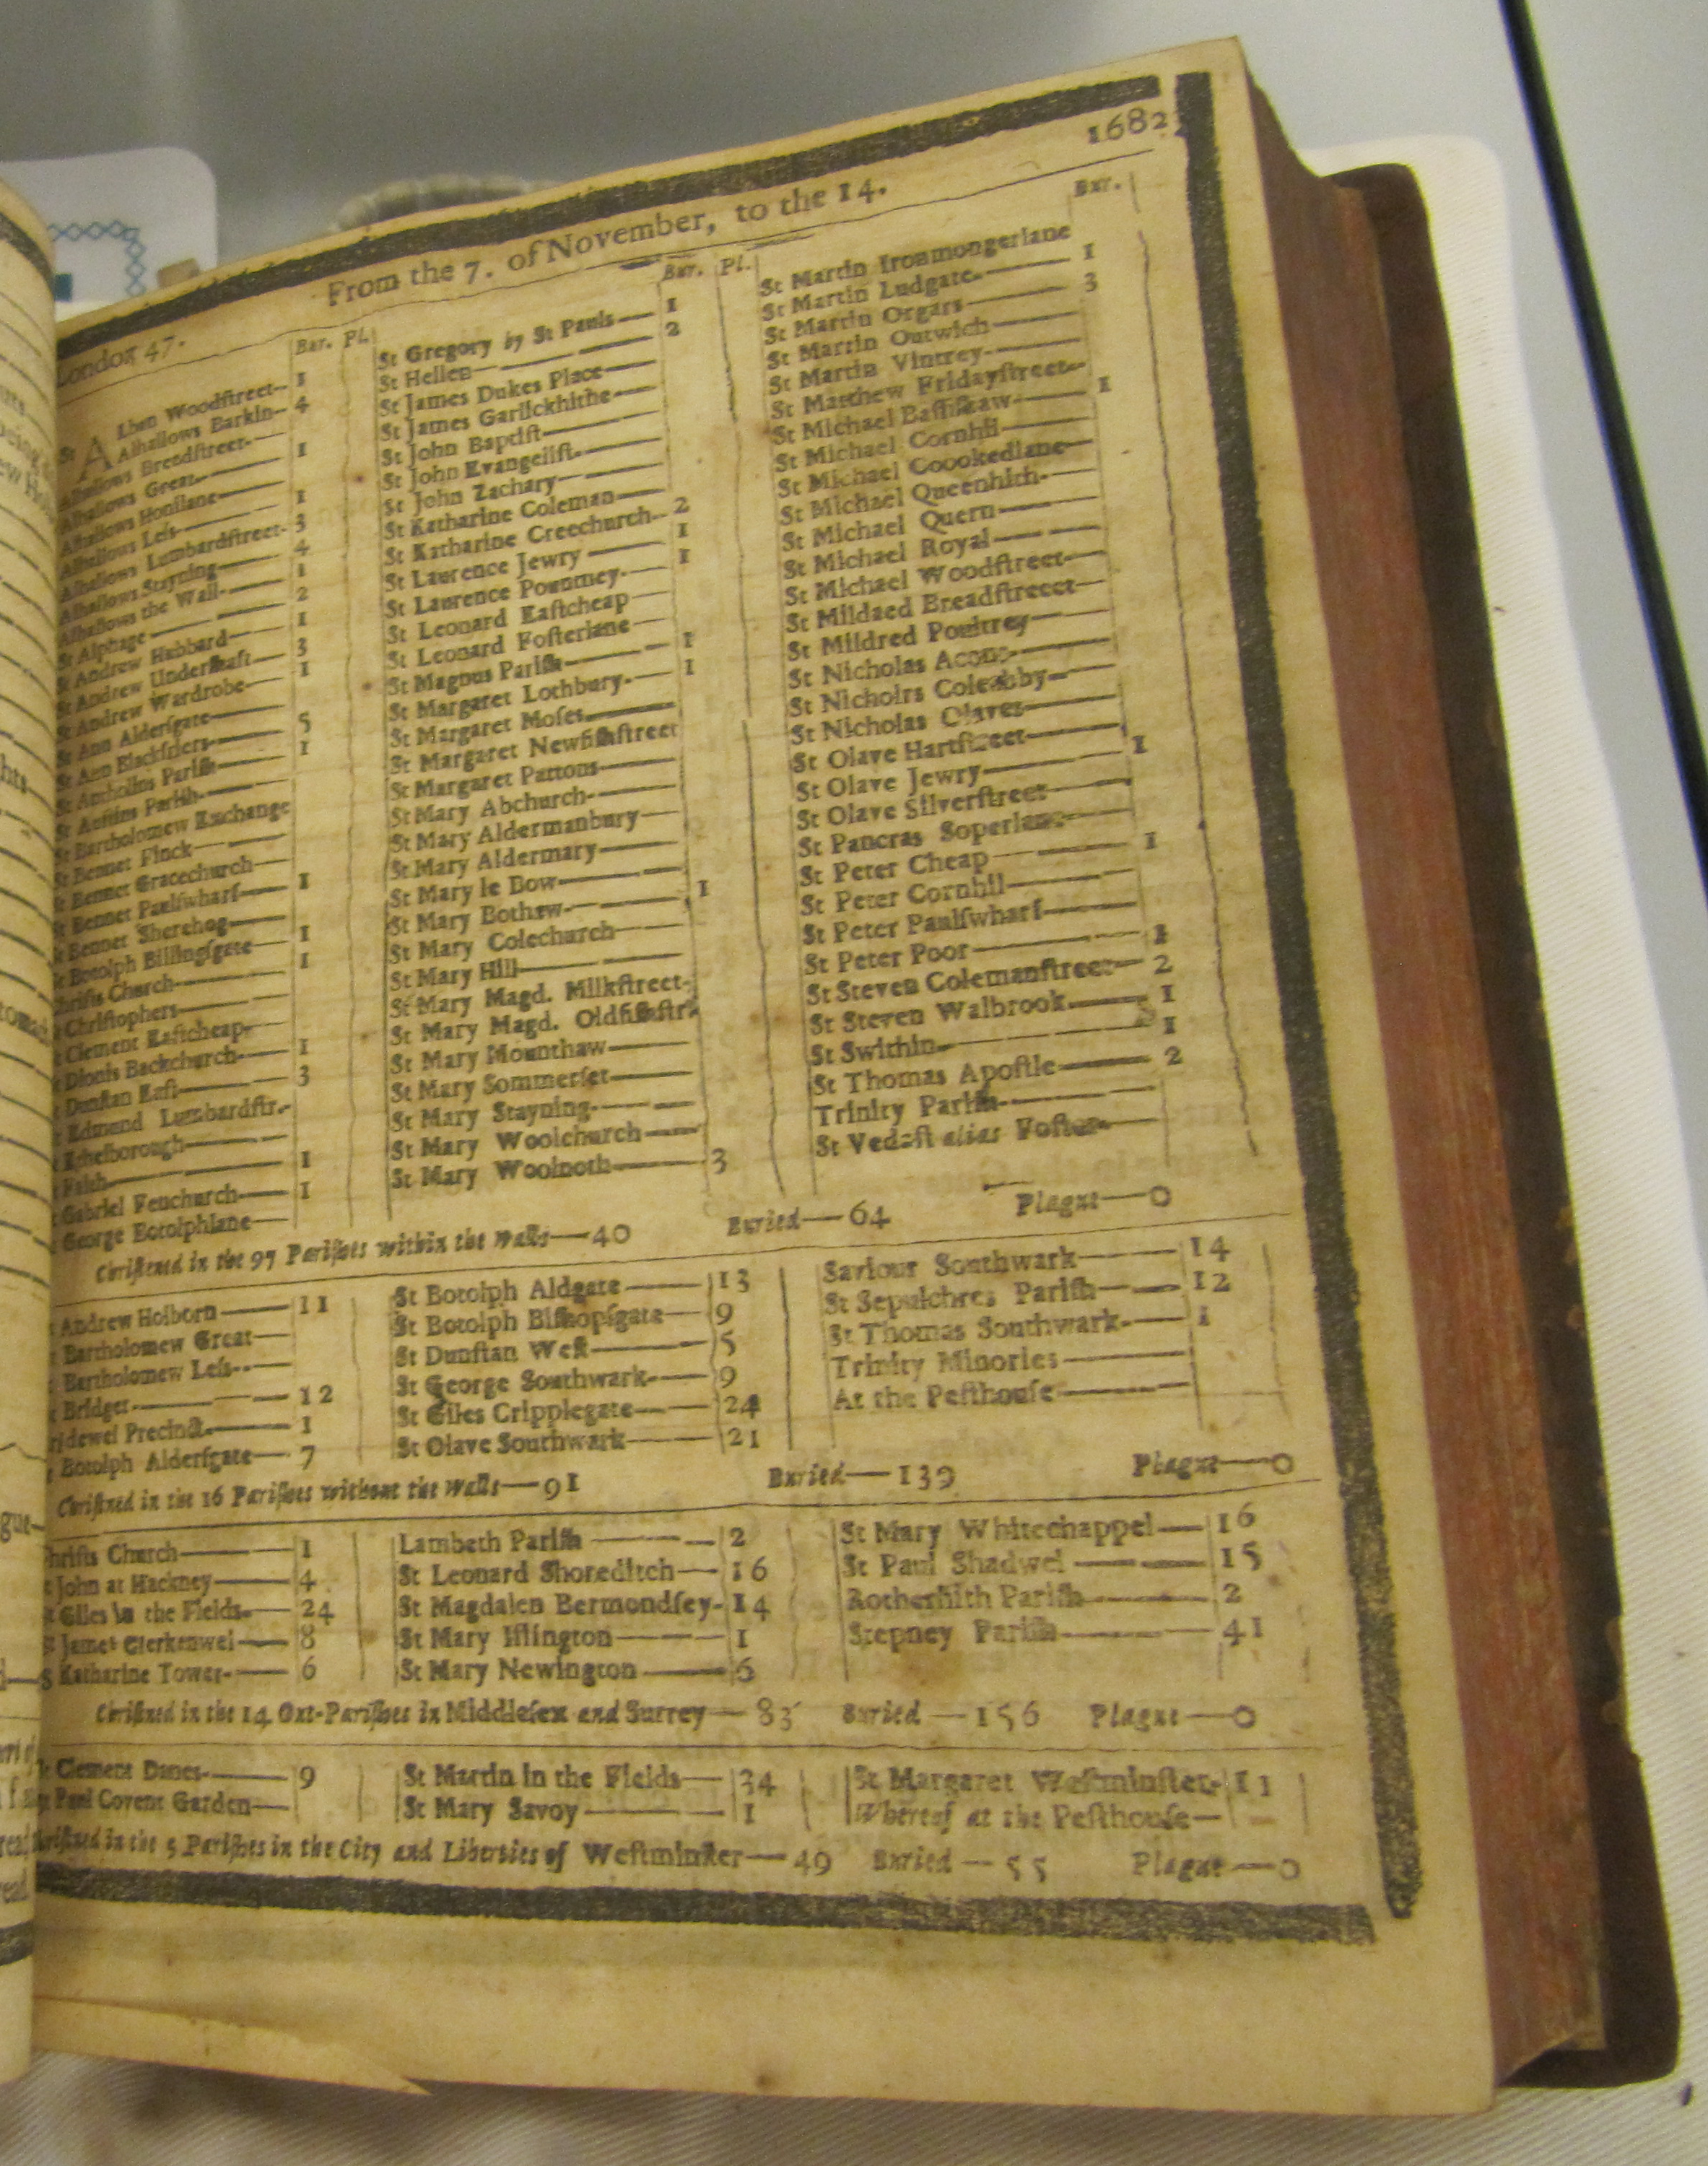 1682
From the 7. of November, to the 14.
London 47.
Bur. Pl.
St Alban Woodſtreet 1
Alhallows Barkin 4
Alhallows Breadſtreet
Alhallows Great 1
Alhallows Honilane
Alhallows Leſs 1
Alhallows Lumbardſtreet 3
Alhallows Stayning 4
Alhallows the Wall 1
St Alphage 2
St Andrew Hubbard 1
St Andrew Underſhaft 3
St Andrew Wardrobe 1
St Ann Alderſgate
St Ann Blackfriers 5
St Antholins Pariſh 1
St Auſtins Pariſh
St Bartholomew Exchange
St Bennet Finck
St Bennet Gracechurch
St Bennet Paulſwharf 1
Bennet Sherehog
Botolph Billingſgate 1
hriſts Church 1
Chriſtophers
Clement Eaſtcheap
Dionis Backchurch 1
Dunſtan Eaſt 3
Edmund Lumbardſtr.
Ethelborough
Faith 1
Gabriel Fenchurch 1
George Botolphlane
Bur. Pl.
St Gregory by St Pauls 1
St Hellen 2
St James Dukes Place
St James Garlickhithe
St John Baptiſt
St John Evangeliſt
St John Zachary
St Katharine Coleman
St Katharine Creechurch 2
St Laurence Jewry 1
St Laurence Pountney 1
St Leonard Eaſtcheap
St Leonard Foſterlane
St Magnus Pariſh 1
St Margaret Lothbury 1
St Margaret Moſes
St Margaret Newfiſhſtreet
St Margaret Pattons
St Mary Abchurch
St Mary Aldermanbury
St Mary Aldermary
St Mary le Bow
St Mary Bothaw 1
St Mary Colechurch
St Mary Hill
St Mary Magd. Milkſtreet
St Mary Magd. Oldfiſhſtr.
St Mary Mounthaw
St Mary Sommerſet
St Mary Stayning
St Mary Woolchurch
St Mary Woolnoth 3
Bur.
St Martin Ironmongerlane
St Martin Ludgate 1
St Martin Orgars 3
St Martin Outwich
St Martin Vintrey
St Matthew Fridayſtreet
St Michael Baſſiſhaw 1
St Michael Cornhil
St Michael Coookedlane
St Michael Queenhith
St Michael Quern
St Michael Royal
St Michael Woodſtreet
St Mildaed Breadſtreeet
St Mildred Poultrey
St Nicholas Acons
St Nicholrs Coleabby
St Nicholas Olaves
St Olave Hartſtreet
St Olave Jewry 1
St Olave Silverſtreet
St Pancras Soperlane
St Peter Cheap 1
St Peter Cornhil
St Peter Paulſwharf
St Peter Poor 1
St Steven Colemanſtreet 2
St Steven Walbrook 1
St Swithin 1
St Thomas Apoſtle 2
Trinity Pariſh
St Vedaſt alias Foſter
Chriſtned in the 97 Pariſhes within the walls—40 Buried—64 Plague—0
Andrew Holborn 11
Bartholomew Great
Bartholomew Leſs
Bridget 12
ridewel Precinct 1
Botolph Alderſgate 7
St Botolph Aldgate 13
St Botolph Biſhopſgate 9
St Dunſtan Weſt 5
St George Southwark 9
St Giles Cripplegate 24
St Olave Southwark 21
Saviour Southwark 14
St Sepulchres Pariſh 12
St Thomas Southwark 1
Trinity Minories
At the Peſthouſe
Chriſtned in the 16 Pariſhes without the walls—91 Buried—139 Plague—0
hriſts Church 1
John at Hackney 4
St Giles in the Fields 24
St James Clerkenwel 8
S Katharine Tower 6
Lambeth Pariſh 2
St Leonard Shoreditch 16
St Magdalen Bermondſey 14
St Mary Iſlington 1
St Mary Newington 6
St Mary Whitechappel 16
St Paul Shadwel 15
Rotherhith Pariſh 2
Stepney Pariſh 41
Chriſtned in the 14 Out-Pariſhes in Middleſex and Surrey—83 Buried—156 Plague—0
Clement Danes 9
Paul Covent Garden
St Martin in the Fields 34
St Mary Savoy 1
St Margaret Weſtminſter 11
Whereof at the Peſthouſe
hriſtned in the 5 Pariſhes in the City and Liberties of Weſtminſter—49 Buried—55 Plague—0